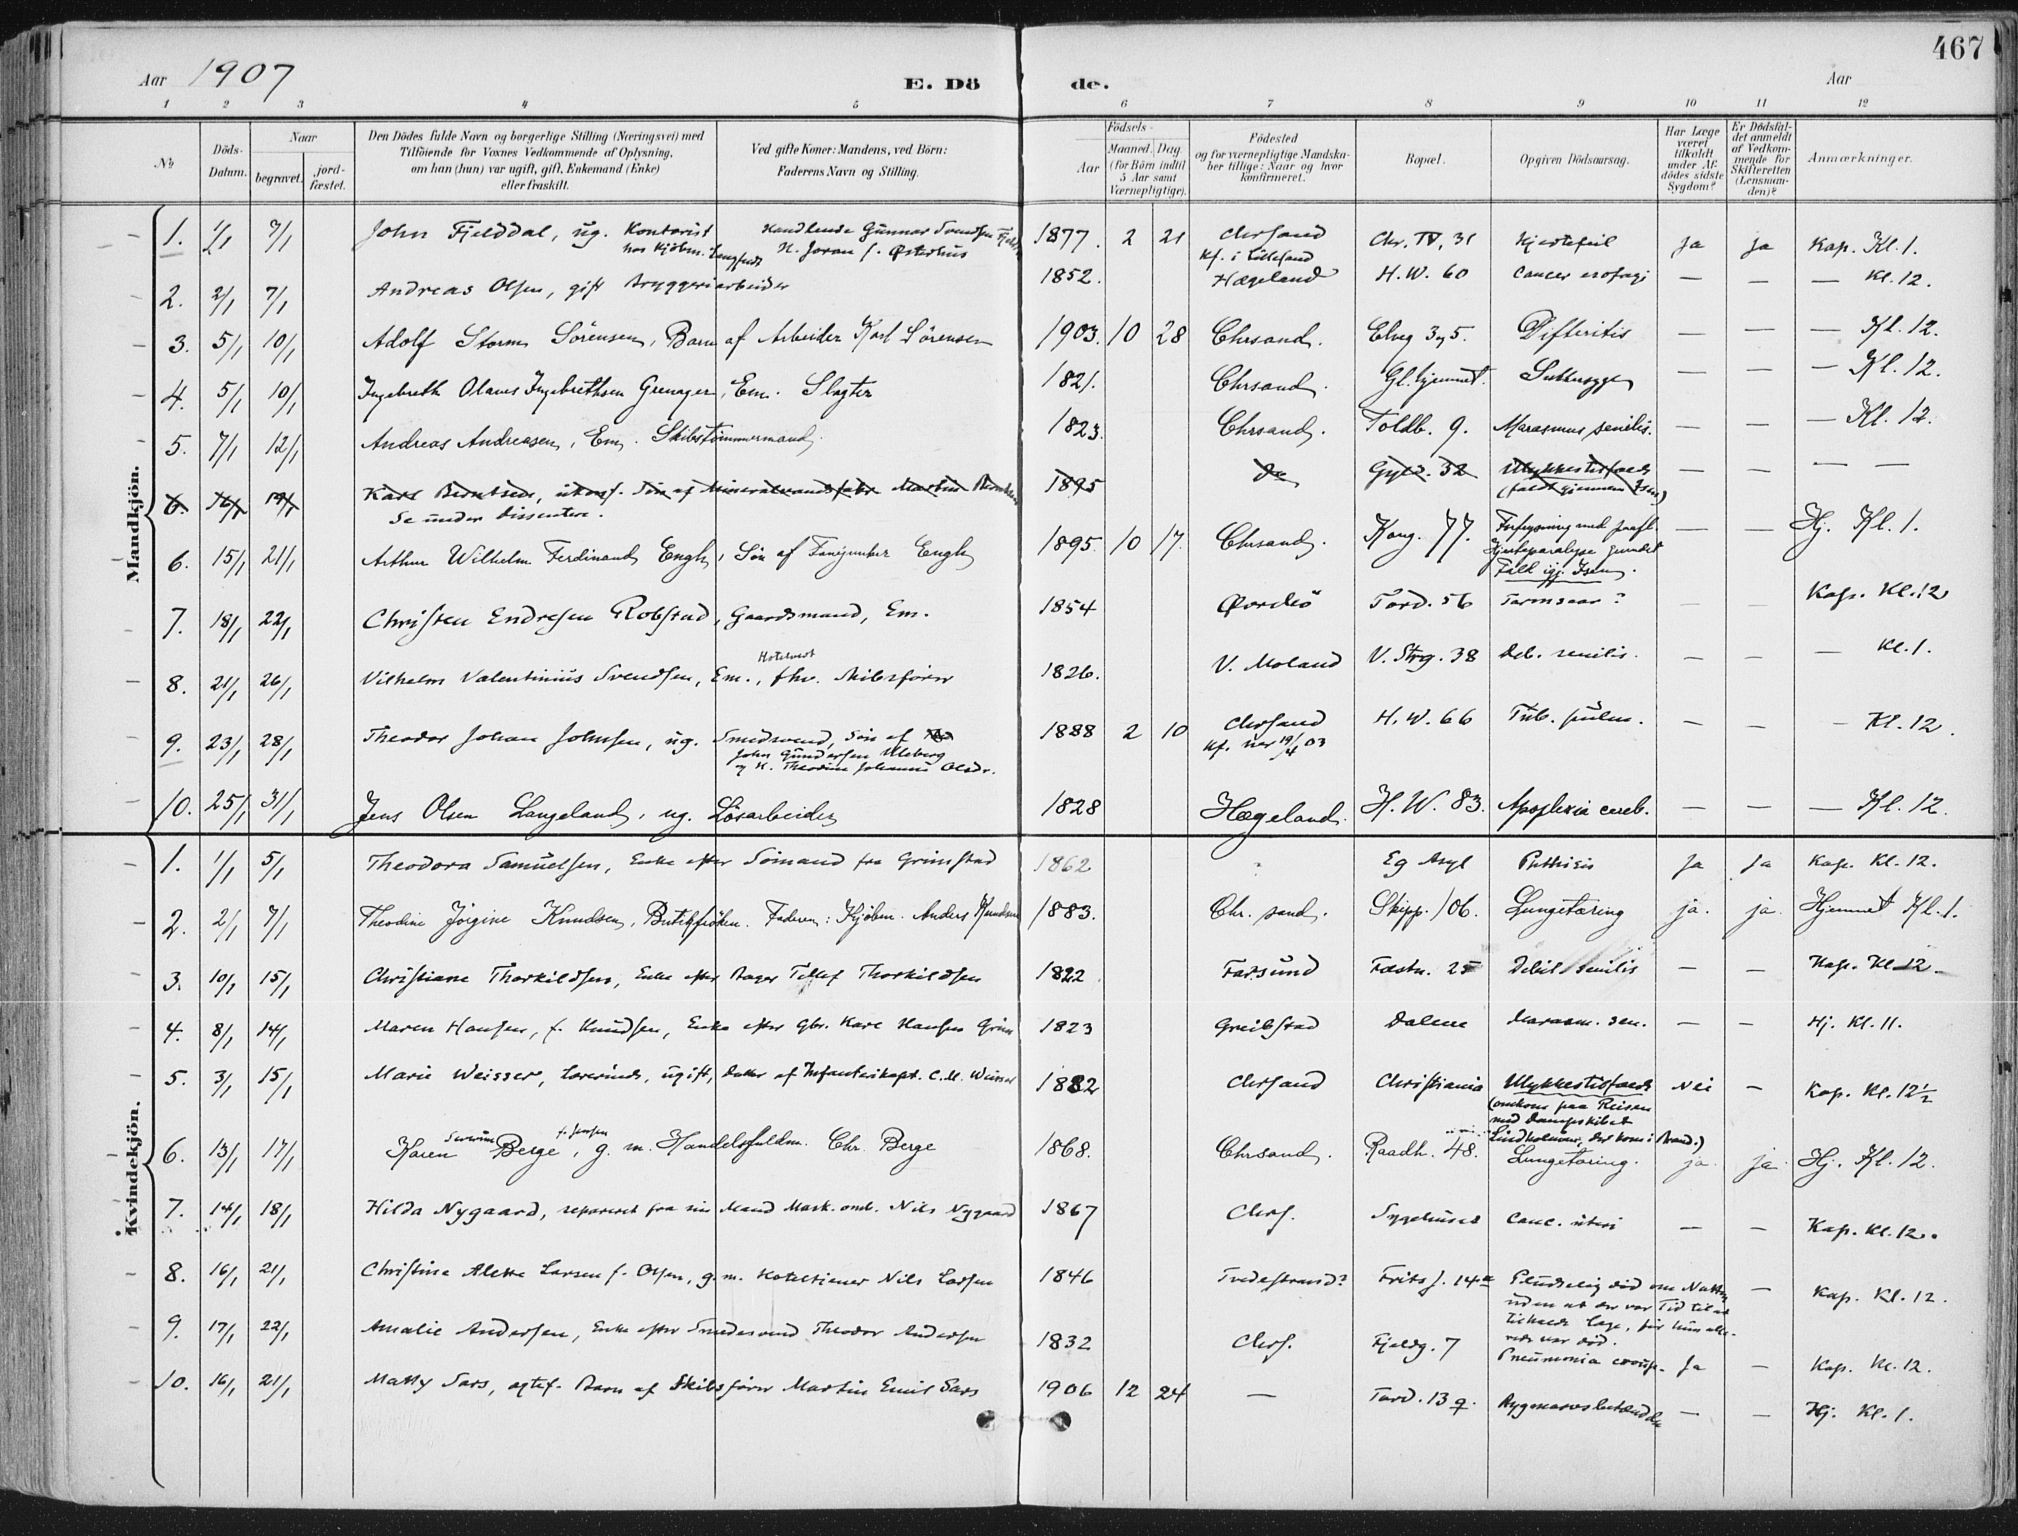 467
Aar 1907 E. Dö de. Aar
1 2 3 4 5 6 7 8 9 10 11 12
No
Döds-Datum.
Naar
begravet.
jordfæstet.
Den Dödes fulde Navn og borgerlige Stilling (Næringsvei) med
Tilföiende for Voxnes Vedkommende af Oplysning,
om han (hun) var ugift, gift, Enkemand (Enke)
eller fraskilt.
Ved gifte Koner: Mandens, ved Börn:
Faderens Navn og Stilling.
Födsels-
Aar
Maaned. Dag
(for Börn indtil
5 Aar samt
Værnepligtige).
Födested
og for værnepligtige Mandskaber tillige: Naar og hvor
konfirmeret.
Bopæl.
Opgiven Dödsaarsag.
Har Læge
været
tilkaldt
under Afdödes sidste
Sygdom?
Er Dödsfaldet anmeldt
af Vedkommende for
Skifteretten
(Lensmanden)?
Anmærkninger.
Mandkjön.
1. 1/1 7/1 John Fjelddal, ug. Kontorist Handlende Gunnar Svendsen 1877. 2 21 Chrsand Chr. IV, 31 Hjertefeil ja ja Kap. Kl. 1.
hos Kjöbm. H. Joran f. Østerhus Kf. i Lillesand
2. 2/1 7/1 Andreas Olsen, gift Bryggeriarbeider 1852. Hægeland H. W. 60 Cancer esofagi — — — Kl. 12.
3. 5/1 10/1 Adolf Storm Sörensen, Barn af Arbeider Karl Sörensen 1903. 10 28 Chrsand. Elveg 35. Difteritis — — — Kl. 12.
4. 5/1 10/1 Ingebreth Olaves Ingebrethsen Grenager, Em. Slagter 1821. Chrsand. Gl. hjemmet. Sukkersyge — — — Kl. 12.
5. 7/1 12/1 Andreas Andreasen, Em. Skibstömmermand. 1823. Chrsand. Toldb. 9. Marasmus senilis. — — — Kl. 12.
6. 16/1 19/1 Karl Berntsen, ukonf. Sön af Mineralvandsfabr. Martin Berntsen 1895 Do Gyld. 32 Ulykkestilfælde — — — —
Se under Dissentere. (faldt gjennem Isen)
6. 15/1 21/1 Arthur Wilhelm Ferdinand Engh, Sön af Fanejunker Engh 1895. 10 17. Chrsand. Kong. 77. Forfrysning med paaf. — — Hj. Kl. 1.
Hjerteparalyse grundet
Fald igj. Isen.
7. 18/1 22/1 Christen Endresen Robstad, Gaardsmand, Em. 1854 Øvrebö Tord. 56 Tarmsaar? — Kap. Kl. 12
8. 21/1 26/1 Vilhelm Valentinius Svendsen, Em., Hotelvert fhv. Skibsförer 1826. V. Moland V. Strg. 38 Deb. senilis. — — — Kl. 1.
9. 23/1 28/1 Theodor Johan Johnsen, ug. Smedsvend, Sön af 1888 2 10 Chrsand H. W. 66 Tub. pulm. — — — Kl. 12.
John Gundersen Uleberg Kf. her 19/4 03
og H. Theodine Johanne Olsdr.
10. 25/1 31/1 Jens Olsen Langeland, ug. Lösarbeider 1828 Hægeland. H. W. 83. Apoplexia cereb. — — — Kl. 12.
Kvindekjön.
1. 1/1 5/1 Theodora Samuelsen, Enke efter Sömand fra Grimstad 1862 ? Eg Asyl Phthisis Ja Ja Kap. Kl. 12.
2. 2/1 7/1 Theodine Jörgine Knudsen, Butikfröken. Faderen: Kjöbm. Anders Knudsen 1883. Chr.sand. Skipp. 106. Lungetæring ja. ja. Hjemmet Kl. 1.
3. 10/1 15/1 Christiane Thorkildsen, Enke efter Bager Tellef Thorkildsen 1822 Farsund Fæstn. 25 Debil. senilis — — Kap. Kl. 12.
4. 8/1 14/1 Maren Hansen, f. Knudsen, Enke efter Gbr. Kare Hansen Grim 1823 Greibstad Dalene Marasm. sen. — — Hj. Kl. 11.
5. 3/1 15/1 Marie Weisser, Lærerinde, ugift, Datter af Infanterikapt. C. M. Weisser 1882 Chrsand Christiania Ulykkestilfælde Nei — Kap. Kl. 12½
(omkom paa Reisen
med Dampskibet
Lindholmen, der kom i Brand.)
6. 13/1 17/1 Karen Severine Berge, f. Jensen g. m. Handelsfuldm. Chr. Berge 1868. Chrsand. Raadh. 48. Lungetæring. ja. ja. Hj. Kl. 12.
7. 14/1 18/1 Hilda Nygaard, separeret fra sin Mand Mask. omb. Nils Nygaard 1867 Chrs. Sygehuset Canc. uteri — — Kap. Kl. 12.
8. 16/1 21/1 Christine Alette Larsen f. Olsen, g. m. Hoteltjener Nils Larsen 1846 Tvedestrand? Frits J. 14a Pludselig död om Natten — Kap. Kl. 12.
uden at der var Tid til at
tilkalde Læge, för hun allerede var död.
9. 17/1 22/1 Amalie Andersen, Enke efter Smedesvend Theodor Andersen 1832 Chrs. Fjeldg. 7 Pneumonia croup. Ja — Kap. Kl. 12.
10. 16/1 21/1 Matty Sars, ægtef. Barn af Skibsförer Martin Emil Sars 1906 12 24 — Tord. 13 Rygmarvsbetændelse — — Hj. Kl. 1.